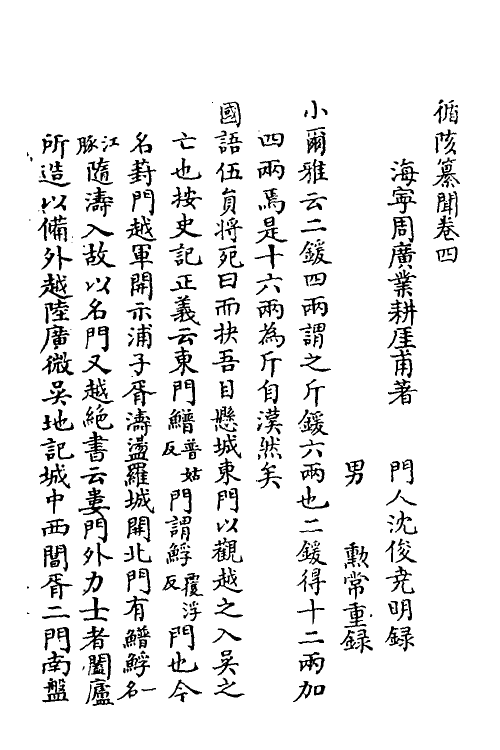 循陔纂聞卷四
海寧周廣業耕厓甫著　門人沈俊堯明録
男　勲常重録
小爾雅云二鍰四兩謂之斤鍰六兩也二鍰得十二兩加
四兩焉是十六兩為斤自漢然矣
國語伍員將死曰而抉吾目懸城東門以觀越之入吴之
亡也按史記正義云東門鱛普姑反門謂鯙覆浮反門也今
名葑門越軍開示浦子胥濤盪羅城開北門有鱛鯙一名
江豚隨濤入故以名門又越絶書云婁門外力士者闔廬
所造以備外越陸廣微吴地記城中西閶胥二門南盤